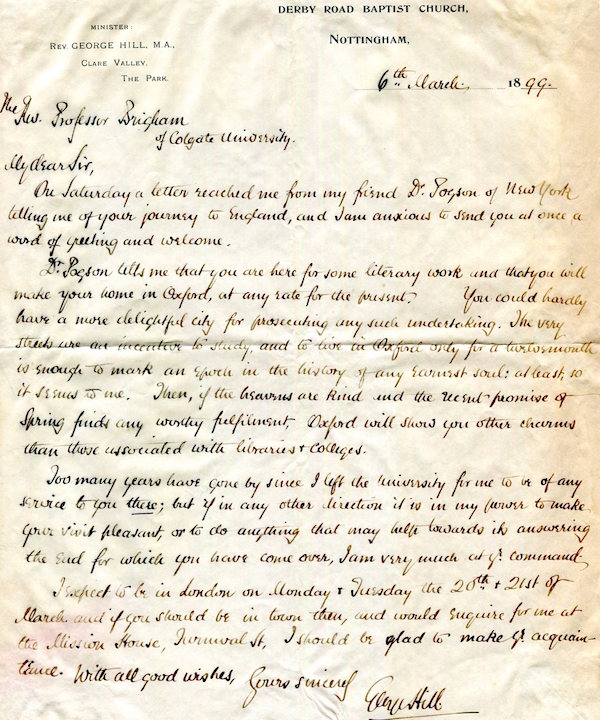 DERBY ROAD BAPTIST CHURCH,
NOTTINGHAM,
MINISTER:
REV. GEORGE HILL, M.A.,
CLARE VALLEY,
THE PARK.
6th March, 1899.
The Rev. Professor Brigham
of Colgate University.
My dear Sir,
On Saturday a letter reached me from my friend Dr. Pogson of New York
telling me of your journey to England, and I am anxious to send you at once a
word of greeting and welcome.
Dr. Pogson tells me that you are here for some literary work and that you will
make your home in Oxford, at any rate for the present. You could hardly
have a more delightful city for prosecuting any such undertaking. The very
streets are an incentive to study, and to live in Oxford only for a twelvemonth
is enough to mark an Epoch in the history of any Earnest soul: at least, so
it seems to me. Then, if the heavens are kind and the recent promise of
Spring finds any worthy fulfilment, Oxford will show you other charms
than those associated with libraries & Colleges.
Too many years have gone by since I left the University for me to be of any
service to you there; but if in any other direction it is in my power to make
your visit pleasant, or to do anything that may help towards its answering
the End for which you have come over, I am very much at yr. command.
I expect to be in London on Monday & Tuesday the 20th & 21st of
March and if you should be in town then, and would Enquire for me at
the Mission House, Furnival St, I should be glad to make yr. acquain-
tance. With all good wishes,
Yours sincerely
George Hill